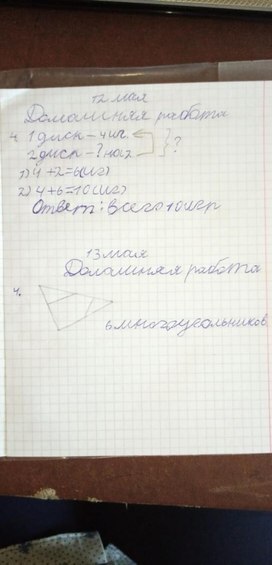 12 мая
Домашняя работа
4. 1 диск – 4 иг.
2 диск – ? на 2 }?
1) 4 + 2 = 6 (иг)
2) 4 + 6 = 10 (иг)
Ответ: всего 10 игр
13 мая
Домашняя работа
4.
6 многоугольников